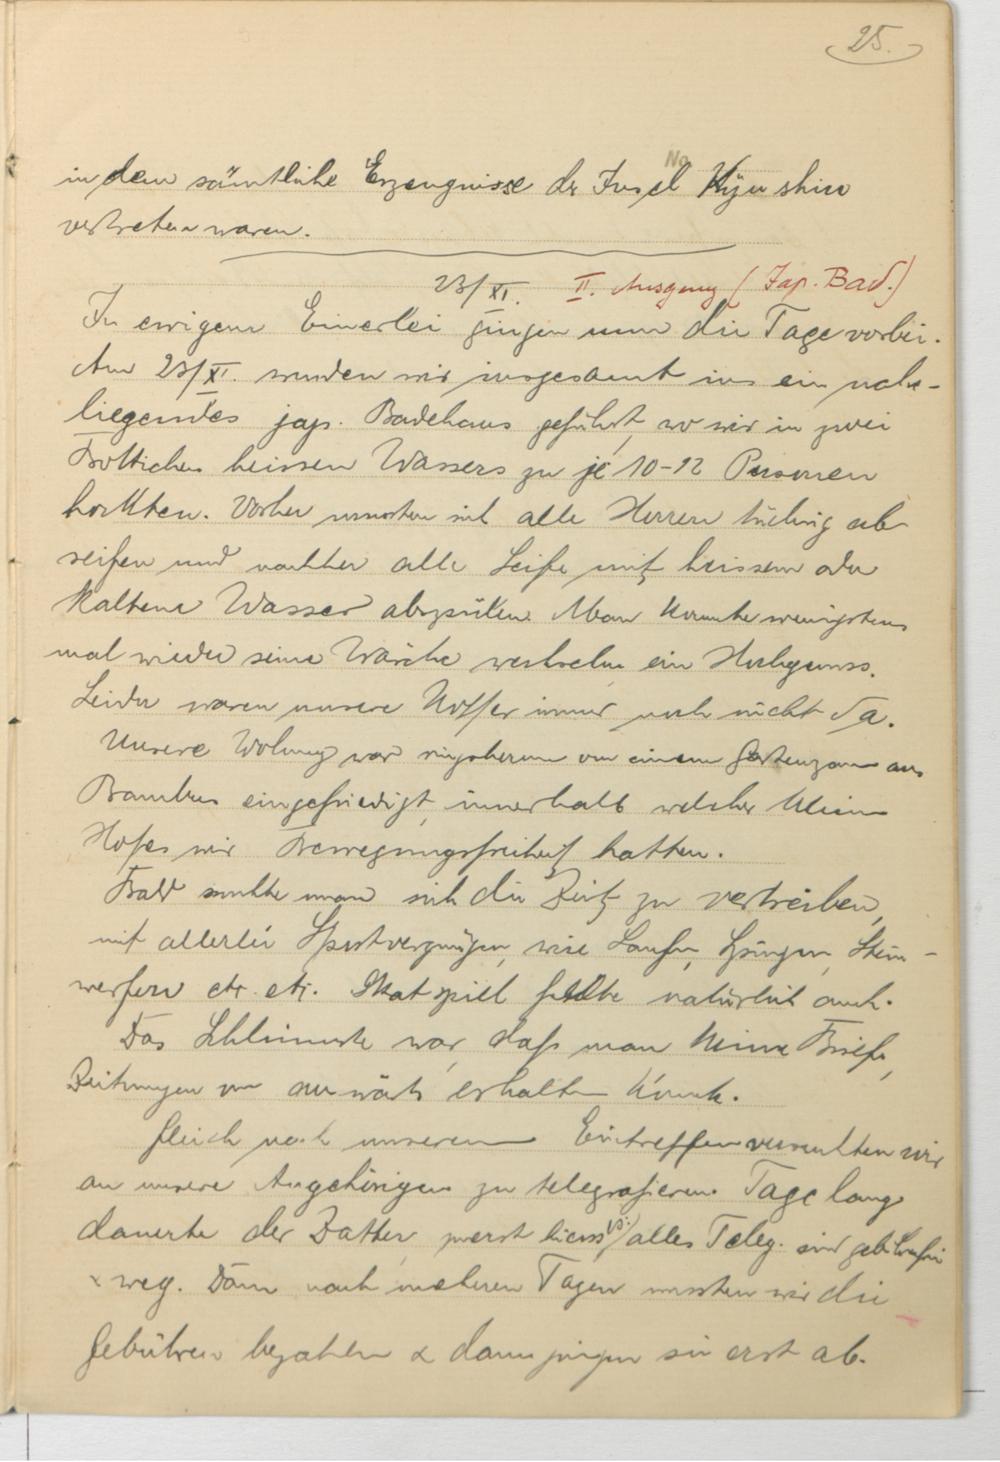 25.
in dem sämtliche Erzeugnisse der Insel Kyushiu
vertreten waren.
23/XI. II. Ausgang (Jap. Bad.)
In ewigem Einerlei gingen nun die Tage vorbei.
Am 23/XI. wurden wir insgesamt ins ein nahe-
liegendes jap. Badehaus geführt, wo wir in zwei
Bottichen heissen Wassers zu je 10-12 Personen
hockten. Vorher mussten sich alle Herren tüchtig ab-
seifen und nachher alle Seife mit heissem oder
kaltem Wasser abspülen. Man konnte wenigstens
mal wieder seine Wäsche wechseln ein Hochgenuss.
Leider waren unsere Koffer immer noch nicht da.
Unsere Wohnung war ringsherum von einem Gartenzaun aus
Bambus eingefriedigt, innerhalb welcher kleinen
Hofes wir Bewegungsfreiheit hatten.
Bald suchte man sich die Zeit zu vertreiben,
mit allerlei Sportvergnügen, wie Laufen, Springen, Stein-
werfen etc. etc. Skatspiel fehlte natürlich auch.
Das Schlimmste war, dass man keine Briefe,
Zeitungen von auswärts erhalten konnte.
Gleich nach unserem Eintreffen versuchten wir
an unsere Angehörigen zu telegrafieren. Tage lang
dauerte der Datter, zuerst hiess es: alles Teleg. sind gebührenfrei
& weg. Dann nach mehreren Tagen mussten wir die
Gebühren bezahlen & dann gingen sie erst ab.